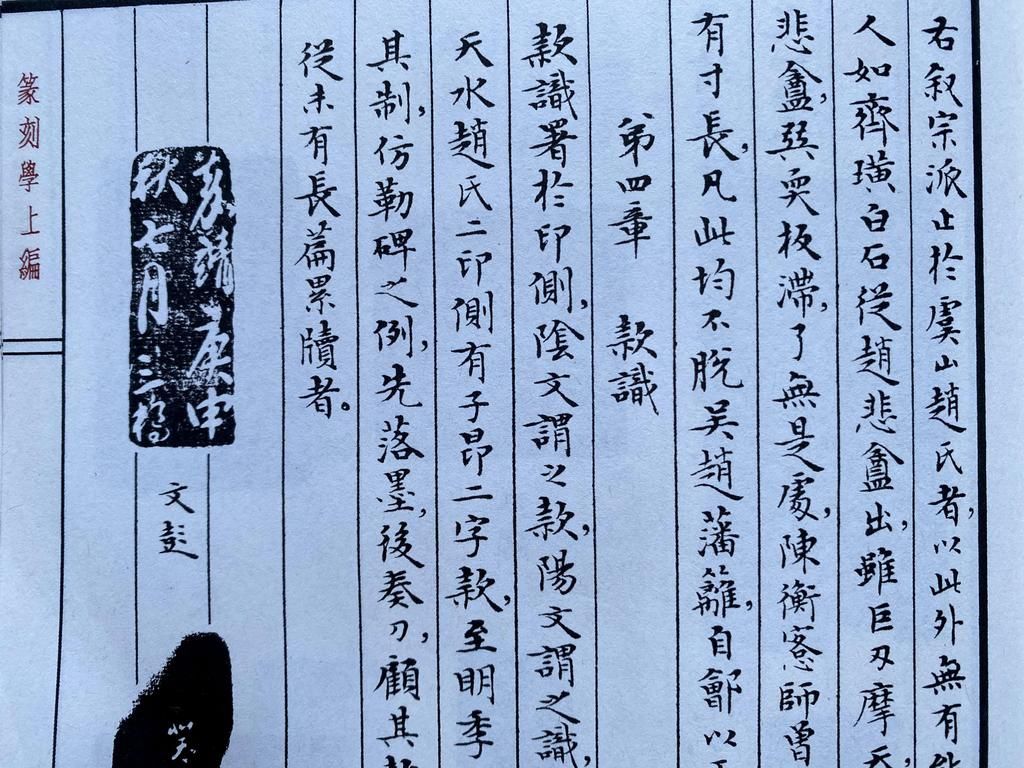 右叙宗派止於虞山趙氏者,以此外無有
人如齊璜白石從趙悲盦出,雖巨刃摩天,
悲盦,異耎板滯,了無是處,陳衡恪師曾
有寸長,凡此均不脫吳趙藩籬,自鄶以
第四章 款識
款識署於印側,陰文謂之款,陽文謂之識,
天水趙氏二印側有子昂二字款,至明季
其制,仿勒碑之例,先落墨,後奏刀,顧其款
從未有長篇累牘者。
嘉靖庚申
秋七月三橋
文彭
篆刻學上編